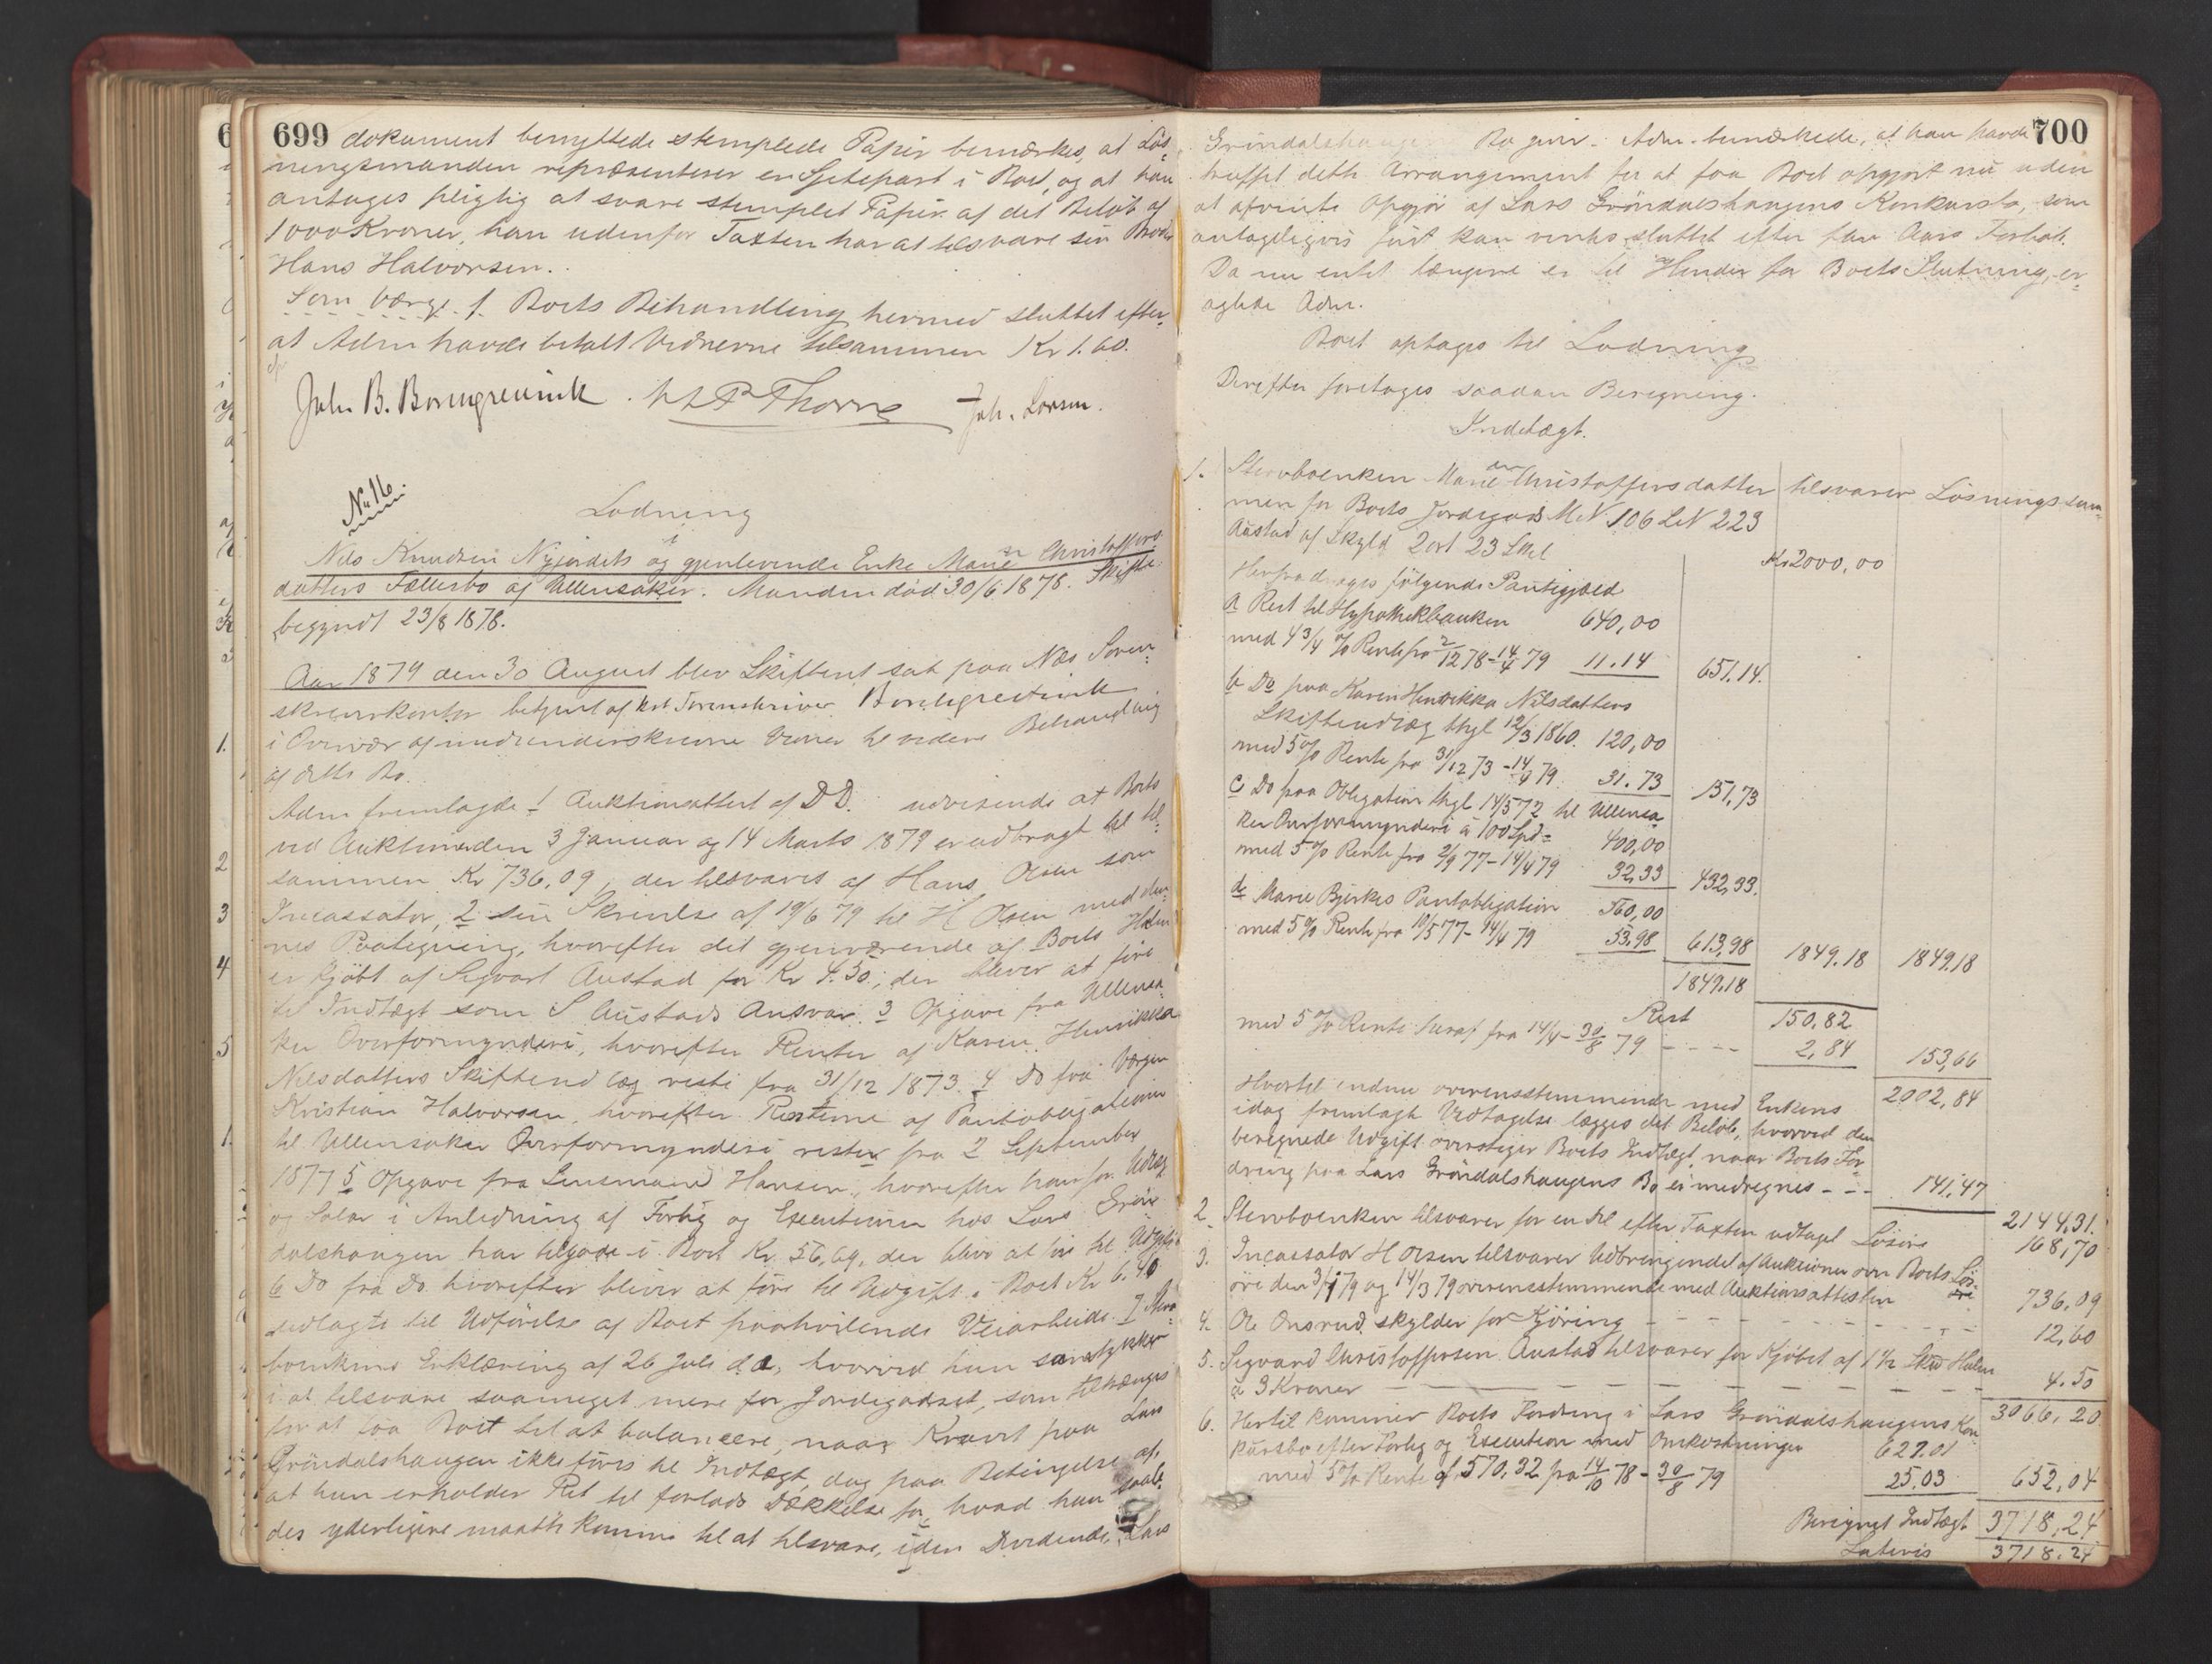 699
dokument benyttede stemplede Papir bemærkes, at Løs-
ningsmanden repræsenterer en Sjettepart i Boet, og at han
antages pligtig at svare stemplet Papir af det Beløb af
1000 Kroner, han udenfor Taxten har at tilsvare sin Broder
Hans Halvorsen.
Som Værge. f. Boets Behandling hermed sluttet efter-
at Adm havde betalt Vidnerne tilsammen Kr 1.60.
Joh. B. Borchgrevink. Thorne Joh. Larsen.
No 16.
Lodning
i
Nils Knudsen Nyjordets og gjenlevende Enke Maren Christoffers-
datters Fællesbo af Ullensaker. Manden død 30/6 1878. Skifte
begyndt 23/8 1878.
Aar 1879 den 30 August blev Skifteret sat paa Næs Soren-
skriverkontor betjent af kst Sorenskriver Borchgrevink
i Overvær af medunderskrevne Vidner til videre Behandling
af dette Bo.
Adm fremlagde 1 Auktionsattest af DD. udvisende at Boets
ved Auktionerden 3 Januar og 14 Marts 1879 er udbragt til til-
sammen Kr 736.09, der tilsvares af Hans Olsen som
Incassator, 2 sin Skrivelse af 19/6 79 til H Olsen med den-
nes Paategning, hvorefter det gjenværende af Boets Halm
er kjøbt af Sigvart Austad for Kr 4.50, der bliver at føre
til Indtægt som S Austads Ansvar. 3 Opgave fra Ullensa-
ker Overformynderi, hvorefter Renter af Karen Henrikka
Nilsdatters Skifteudlæg reste fra 31/12 1873. 4 Do fra Værgen
Kristian Halvorsen, hvorefter Renterne af Pantobligationen
til Ullensaker Overformynderi rester fra 2 September
1877 5 Opgave fra Lensmand Hansen, hvorefter han for Udlæg
og Salær i Anledning af Forlig og Executionen hos Lars Grön-
dalshaugen har tilgode i Boet Kr. 56,69, der bliver at føre til Udgift
6 Do fra Do hvorefter bliver at føre til Udgift i Boet Kr 6.40
udlagte til Udførelse af Boet paahvilende Veiarbeide. 7 Sterv-
boenkens Erklæring af 26 Juli d.a, hvorved hun samtykker
i at tilsvare saameget mere for Jordegodset, som tiltrænges
for at faa Boet til at balancere, naar Kravet paa Lars
Gröndalshaugen ikke føres til Indtægt, dog paa Betingelse af,
at hun erholder Ret til forlods Dækkelse for, hvad hun saale-
des yderligere maatte komme til at tilsvare, i den Dividende, Lars
700
Gröndalshaugens Bo giver. Adm. bemærkede, at han havde
truffet dette Arrangement for at faa Boet opgjort nu uden
at afvente Opgjør af Lars Gröndalshaugens Konkursbo, som
antageligvis først kan ventes sluttet efter flere Aars Forløb.
Da nu intet længere er til Hinder for Boets Slutning, er-
agtede Adm.
Boet optages til Lodning
Derefter foretages saadan Beregning.
Indtægt.
1. Stervboenken Maren Christoffersdatter tilsvarer Løsningssum-
men for Boets Jordegods M.N. 106 L.N 223
Austad af Skyld 2 ort 23 Skil Kr 2000,00
Herfra drages følgende Pantegjæld
a Rest til Hypothekbanken 640,00
med 4 3/4 % Rente fra 2/12 78 - 14/4 79 11.14 651.14.
b Do paa Karen Henrikka Nilsdatters
Skifteudlæg thgl 12/3 1860. 120,00
med 5 % Rente fra 31/12 73 - 14/4 79. 31.73 151,73
c Do paa Obligation thgl 14/5 72 til Ullensa-
ker Overformynderi á 100 Spd= 400,00
med 5 % Rente fra 2/9 77 - 14/4 79 32,33 432,33.
d Marie Bjerkes Pantobligation 560,00
med 5 % Rente fra 10/5 77 - 14/4 79 53.98 613,98 1849.18 1849.18
1849.18
Rest 150.82
med 5 % Rente heraf fra 14/4 - 30/8 79 - - - - 2,84 153,66
2002,84
Hvortil endnu overensstemmende med Enkens
idag fremlagte Vedtagelse lægges det Beløb, hvorved den
beregnede Udgift overstiger Boets Indtægt, naar Boets For-
dring paa Lars Gröndalshaugens Bo ei medregnes - - - 141,47
2144,31.
2. Stervboenken tilsvarer for en Del efter Taxten udtaget Løsøre 168,70
3. Incassator H Olsen tilsvarer Udbringendet af Auktioner over Boets Løs-
øre den 3/1 79 og 14/3 79 overensstemmende med Auktionsattesten 736,09
4. Ole Onsrud skylder for Kjøring - - - - 12,60
5. Sigvard Christoffersen Austad tilsvarer for Kjøbet af 1 1/2 Skd Halm
á 3 Kroner - - - - 4.50
3066,20
6. Hertil kommer Boets Fordring i Lars Gröndalshaugens Kon-
kursbo efter Forlig og Execution med Omkostninger 627.01
med 5 % Rente af 570,32 fra 14/10 78 - 30/8 79 25.03 652,04
Beregnet Indtægt 3718,24
Lateris 3718.24